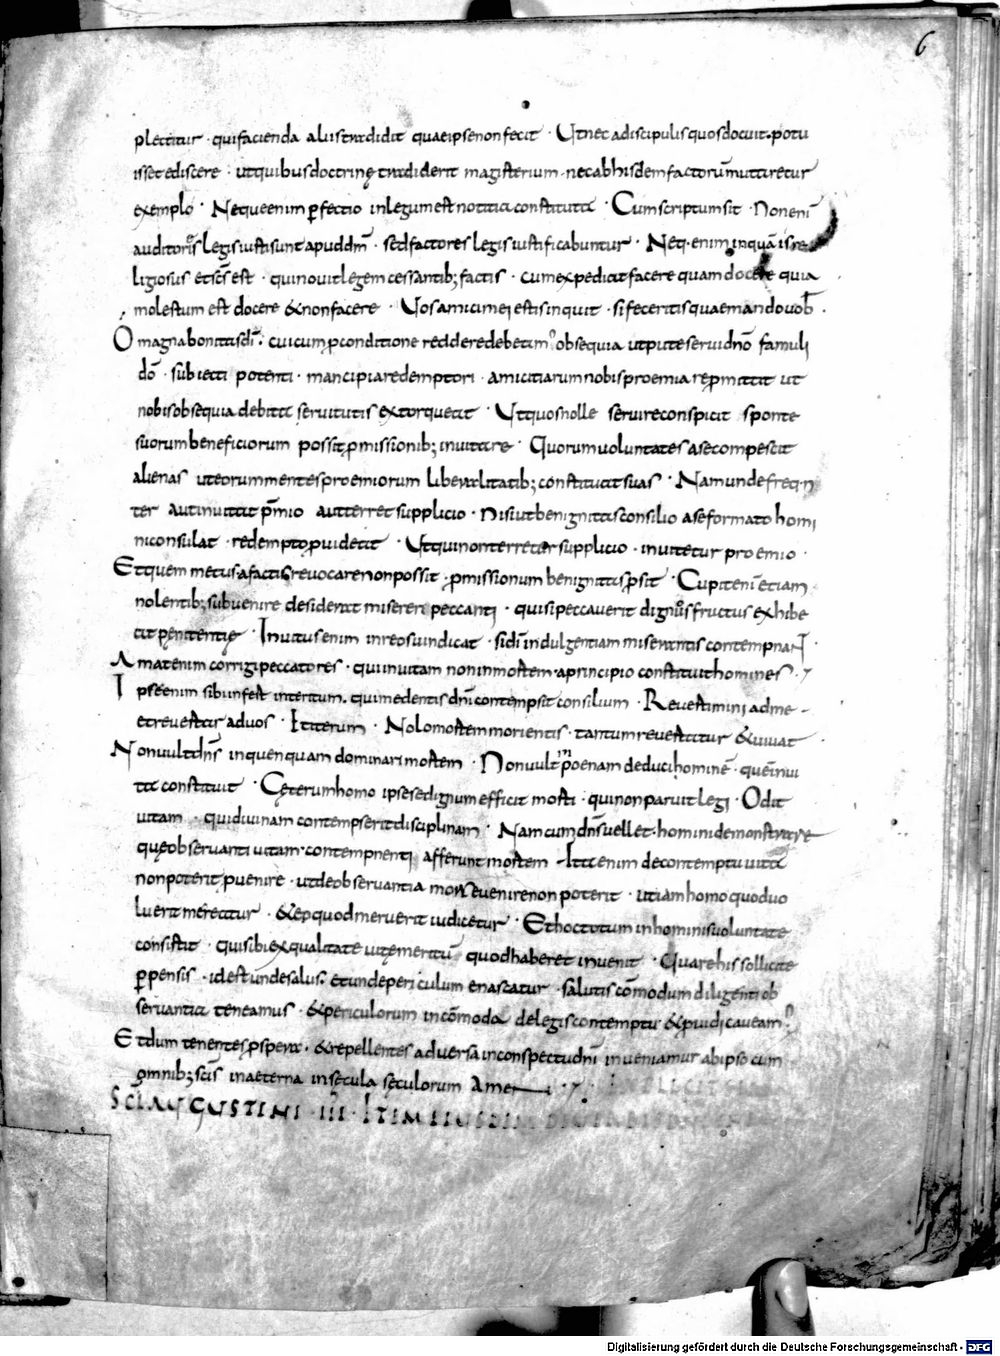 6
plectitur · qui facienda aliis tradidit quae ipse non fecit · Ut nec a discipulis quos docuit · potu
isset ediscere · ut quibus doctrinę tradiderit magisterium · nec ab hisdem factorū mutaretur
exemplo · Neque enim ꝑfectio in legum est notitia constituta · Cum scriptum sit · Non enī
auditores legis iusti sunt apud dm̄ · sed factores legis iustificabuntur · Neq· enim inquā is re
ligiosus et scs̄ est · qui novit legem cessantib; factis · cum expediat facere quam docere quia
molestum est docere & non facere · Vos amici mei estis inquit · si feceritis quae mando vob̄ ·
O magna bonitas dī · cui cum ꝓ conditione reddere debeam᾽ obsequia ut pute servi dnō famuli
dō · subiecti potenti · mancipia redemptori · amicitiarum nobis proemia repmittit ut
nobis obsequia debita servitutis extorqueat · Ut quos nolle servire conspicit sponte
suorum beneficiorum possit ꝓmissionib; invitare · Quorum voluntates a se compescit
alienas ut eorum mentes proemiorum liberalitatib; constituat suas · Nam unde freq·n
ter aut invitat p̄mio aut terret supplicio · Nisi ut benignitatis consilio a se formato homi
ni consulat · redemptor ꝓvideat · Ut qui non terretur supplicio · invitetur proemio ·
Et quem metus a factis revocare non possit · ꝓmissionum benignitas ꝓsit · Cupit enī etiam
nolentib; subvenire desiderat misereri peccanti · qui si peccaverit dignos fructus exhibe
at pęnitentię · Invitus enim in reos vindicat · si dī indulgentiam miserantis contempnant ·
Amat enim corrigi peccatores · qui in vitam non in mortem · a principio constituit homines ·
Ipse enim sibi infest interitum · qui medentis dnī contempsit consilium · Revertimini ad me
et revertar ad vos · Et iterum · Nolo mortem morientis · tantum revertatur & vivat
Non vult dns̄ in quenquam dominari mortem · Non vult in poenam deduci hominē · quē in vi
ta constituit · Cęterum homo ipse se dignum efficit morti · qui non paruit legi · Odit
vitam · qui divinam contempserit disciplinam · Nam cum dns̄ vellet · homini demonstrare
quę observanti vitam · contempnenti afferunt mortem · Ita enim de contemptu vita
non poterit ꝓvenire · ut de observantia mors evenire non poterit · ut iam homo quod vo
luerit mereatur · & ep quod meruerit iudicetur · Et hoc totum in hominis voluntate
consistit · qui sibi ex qualitate vitę meritū quod haberet invenit · Quare his sollicite
ꝑpensis · id est unde salus · et unde periculum enascatur · salutis cōmodum diligenti ob
servantia teneamus · & periculorum incōmoda de legis contemptu & ꝓvidi caveam᾽
Et dum tenentes ꝓspera · & repellentes adversa in conspectu dnī inveniamur ab ipso cum
omnib; scīs in aeterna in secula sęculorum Amen
SCI AUGUSTINI · III · ITEM EIUSDEM